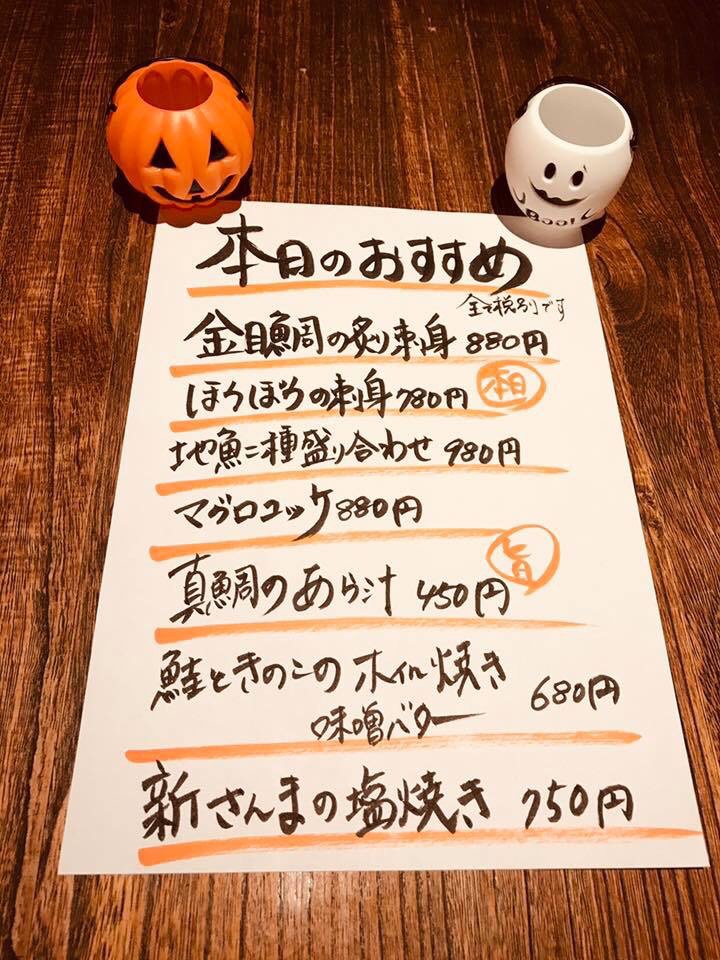 本日のおすすめ
全て税別です
金目鯛の炙り刺身 880円
ほうぼうの刺身 780円 本日
地魚二種盛り合わせ 980円
マグロユッケ 880円
旨
真鯛のあら汁 450円
鮭ときのこのホイル焼き 680円
味噌バター
新さんまの塩焼き 750円